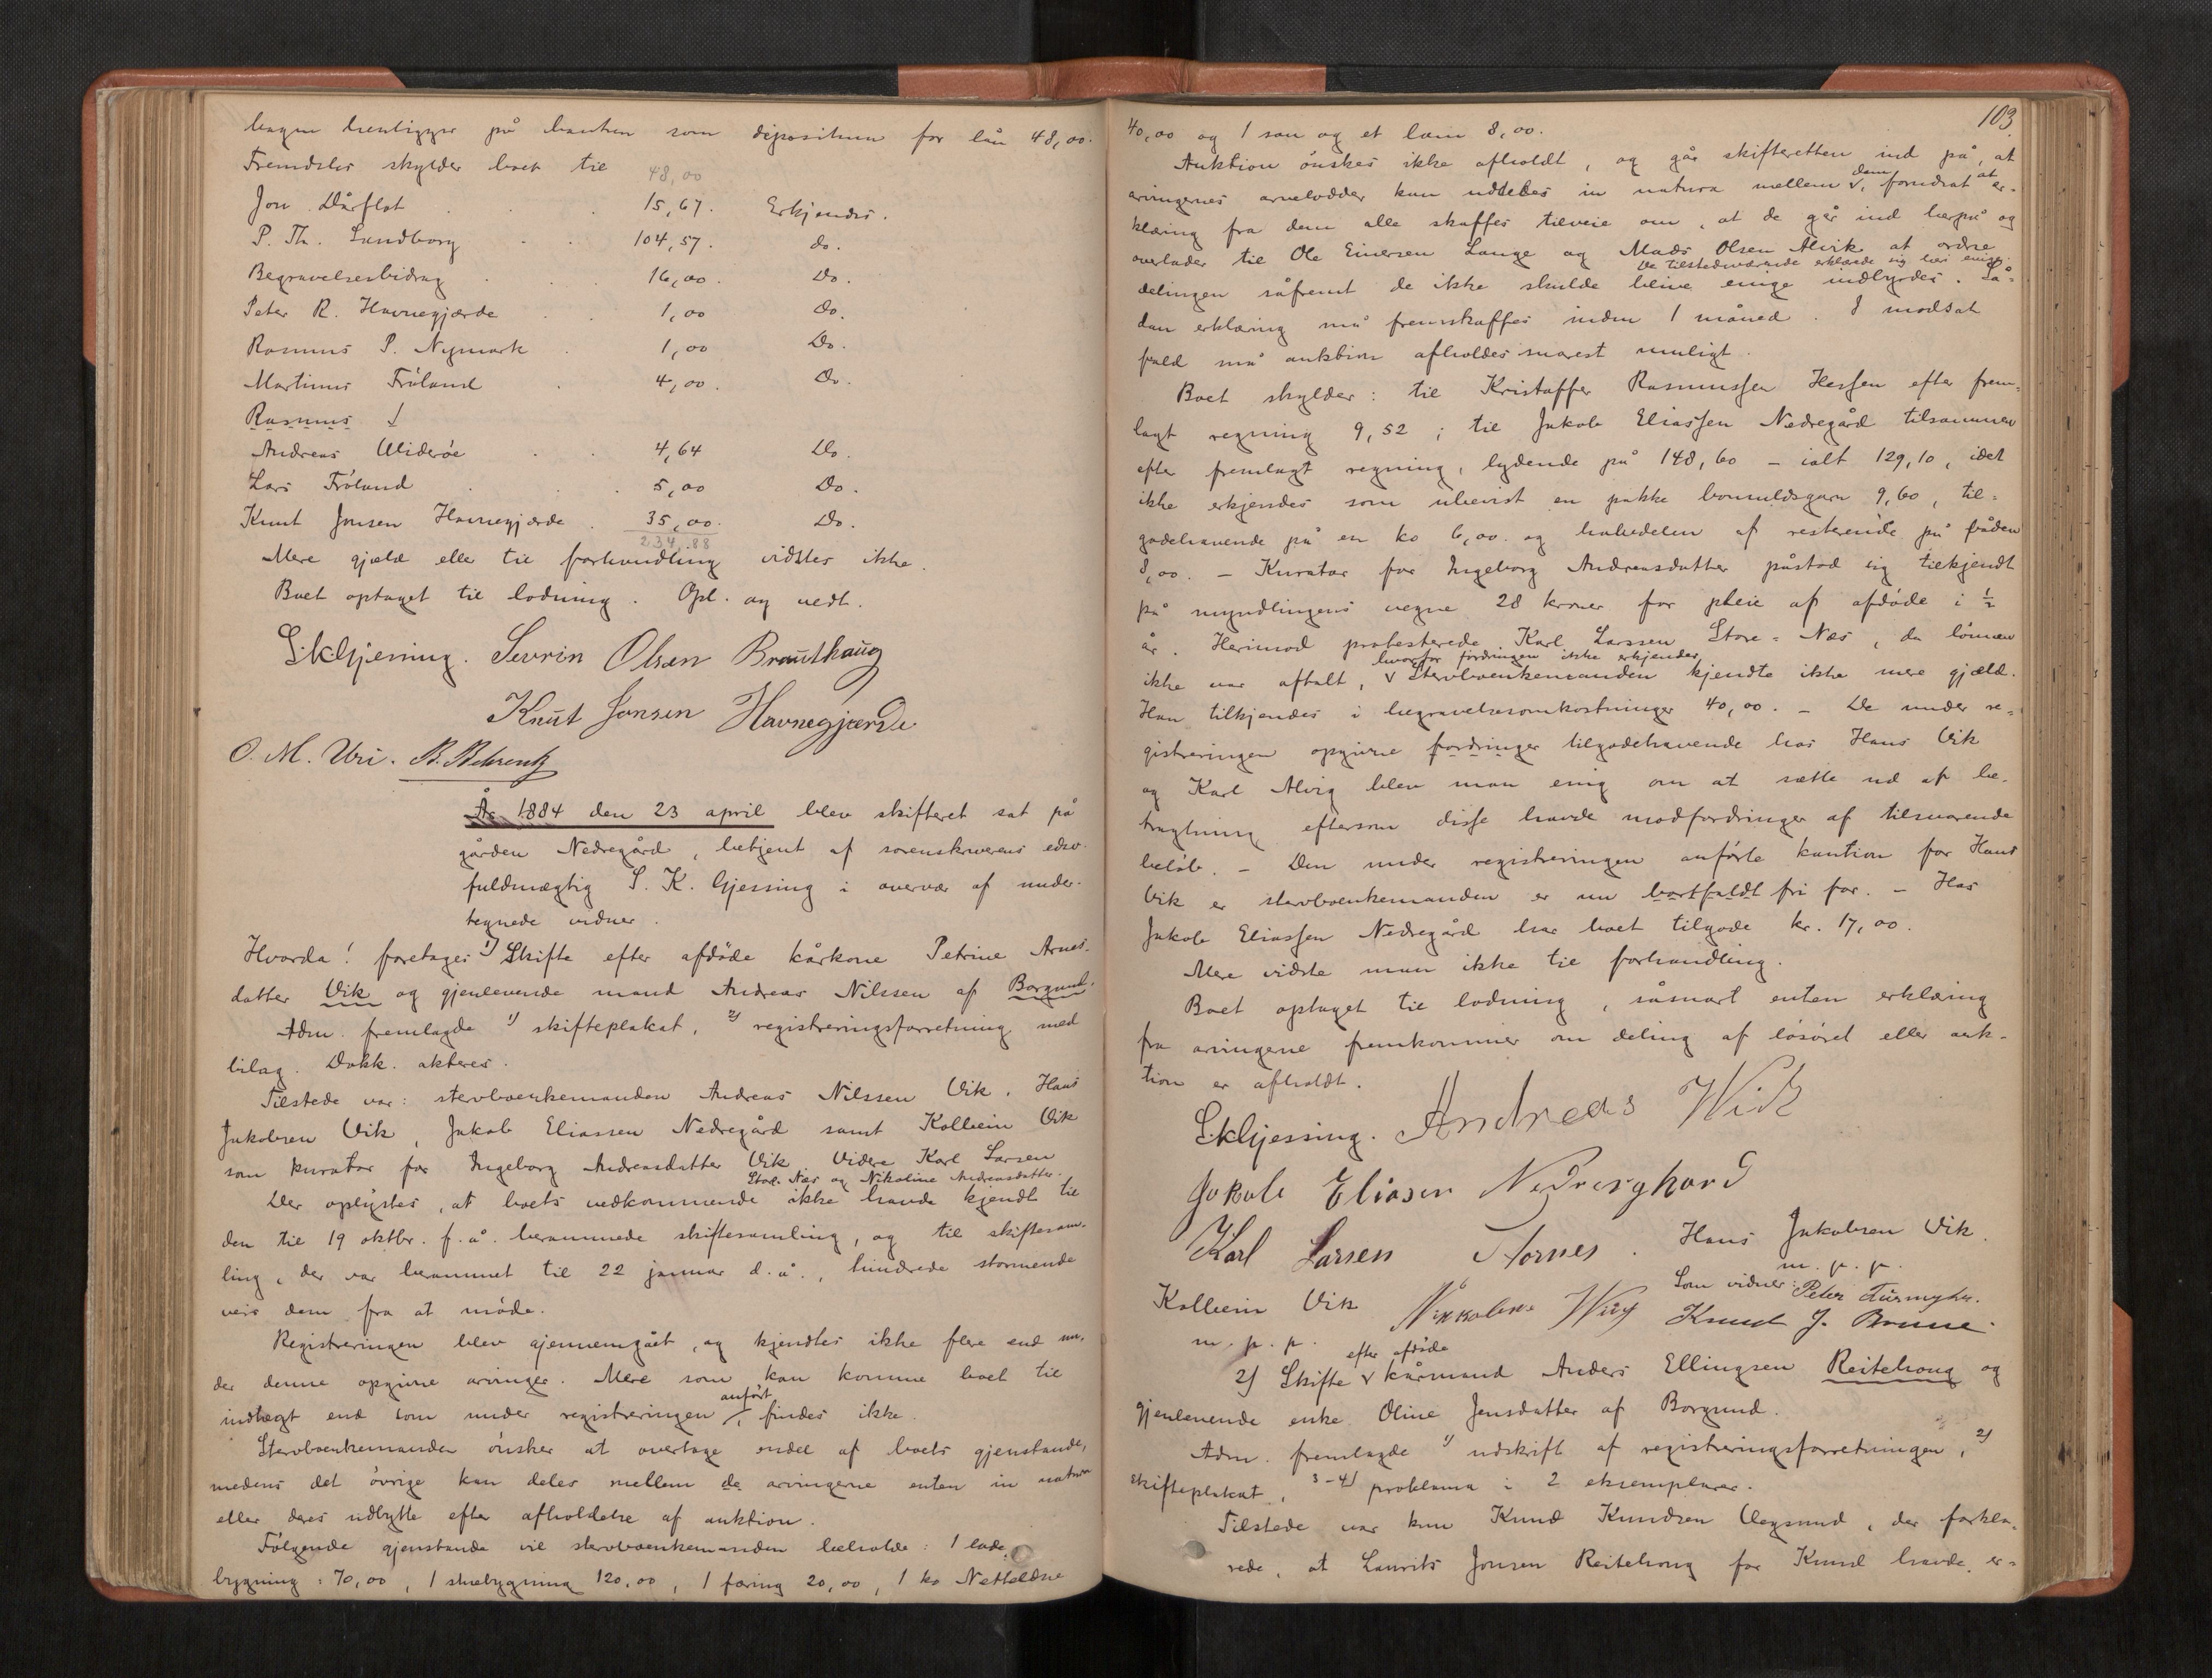 bogen henligger på banken som depositum for lån 48,00.
Fremdeles skylder boet til 48,00
Jon Dårflot 15,67. Erkjendes.
P. Th. Sundborg 104,57. do.
Begravelsesbidrag 16,00. Do.
Peter R. Havnegjærde 1,00 Do.
Rasmus P. Nymark 1,00 Do.
Martinus Fröland 4,00. Do.
Rasmus
Andreas Ulideröe 4,64 Do.
Lars Fröland 5,00 Do.
Knut Jonsen Havnegjærde. 35,00. Do.
234,88
Mere gjæld eller til forhandling vidstes ikke.
Boet optaget til lodning. Opl. og vedt.
S. K. Gjessing. Sevrin Olsen Brauthaug
Knut Jonsen Havnegjærde
O. M. Uri. B. Behrentz
År 1884 den 23 april blev skifteret sat på
gården Nedregård, betjent af sorenskriverens edsv.
fuldmægtig S. K. Gjessing i overvær af under-
tegnede vidner.
Hvorda! foretoges 1) Skifte efter afdöde kårkone Petrine Arnes-
datter Vik og gjenlevende mand Andreas Nilssen af Borgund.
Adm. fremlagde 1) skifteplakat, 2) registreringsforretning med
bilag. Dokk. akteres.
Tilstede var: stervboenkemanden Andreas Nilssen Vik, Hans
Jakobsen Vik, Jakob Eliassen Nedregård samt Kolbein Vik
som kurator for Ingeborg Andreasdatter Vik Videre Karl Larsen
Store-Næs og Nikoline Andreasdatter.
Der oplystes, at boets vedkommende ikke havde kjendt til
den til 19 oktbr. f. å. berammede skiftesamling, og til skiftesam-
ling, der var berammet til 22 januar d. å., hindrede stormende
veir dem fra at möde.
Registreringen blev gjennemgået, og kjendtes ikke flere end un-
der denne opgivne arvinger. Mere som kan komme boet til
indtægt end som under registreringen anfört, findes ikke.
Stervboenkemanden önsker at overtage endel af boets gjenstande,
medens det övrige kan deles mellem de arvingerne enten in natura
eller deres udbytte efter afholdelse af auktion.
Fölgende gjenstande vil stervboenkemanden beholde: 1 lade-
bygning: 70,00, 1 stuebygning 120,00, 1 færing 20,00, 1 ko
103.
40,00 og 1 sau og et lam 8,00.
Auktion önskes ikke afholdt, og går skifteretten ind på, at
arvingernes arvelodder kan uddeles in natura mellem dem, forudsat at er-
klæring fra dem alle skaffes tilveie om, at de går ind herpå og
overlader til Ole Einersen Lange og Mads Olsen Alvik at ordne
De tilstedeværende erklærede sig heri enige.
delingen såfremt de ikke skulde blive enige indbyrdes. Så-
dan erklæring må fremskaffes inden 1 måned. I modsat
fald må auktion afholdes snarest muligt.
Boet skylder: til Kristoffer Rasmussen Hessen efter frem-
lagt regning 9,52; til Jakob Eliassen Nedregård tilsammen
efter fremlagt regning, lydende på 148,60 – ialt 129,10, idet
ikke erkjendes som ubevist en pakke bomuldsgarn 9,60, til-
godehavende på en ko 6,00. og halvedelen af resterende på båden
8,00. – Kurator for Ingeborg Andreasdatter påstod sig tilkjendt
på myndlingens vegne 28 kroner for pleie af afdöde i ½
år. Herimod protesterede Karl Larssen Store-Næs, da lönnen
hvorfor fordringen ikke erkjendes
ikke var aftalt, Stervboenkemanden kjendte ikke mere gjæld.
Han tilkjendes i begravelsesomkostninger 40,00. – De under re-
gistreringen opgivne fordringer tilgodehavende hos Hans Vik
og Karl Alvig blev man enig om at sætte ud af be-
tragtning eftersom disse havde modfordringer af tilsvarende
belöb. – Den under registreringen anförte kaution for Hans
Vik er stervboenkemanden er nu bortfaldt fri for. – Hos
Jakob Eliassen Nedregård har boet tilgode kr. 17,00.
Mere vidste man ikke til forhandling.
Boet optaget til lodning, såsnart enten erklæring
fra arvingerne fremkommer om deling af lösöret eller auk-
tion er afholdt.
S. K. Gjessing. Andreas Wik
Jakob Eliasen Nedreghard
Karl Larsen Stornes. Hans Jakobsen Vik.
m. p. p.
Kolbein Vik
m. p. p.
Nikkoline Wiig
Som vidner: Peter
Knud J. Brune.
2) Skifte efter afdöde kårmand Anders Ellingsen Reitehoug og
gjenlevende enke Oline Jensdatter af Borgund.
Adm. fremlagde 1) udskrift af registreringsforretningen, 2)
skifteplakat, 3-4) proklama i 2 eksemplarer.
Tilstede var kun Knud Knudsen Vegsund, der forkla-
rede, at Laurits Jonsen Reitehoug for Knud havde er-